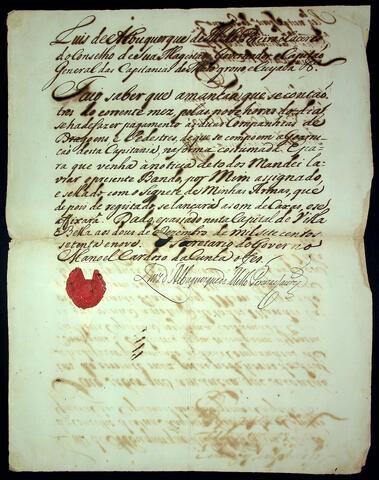 Luis de Albuquerque de Mello Pereira e Caceres
do Conselho de Sua Magestade Governador e Capitão
General das Capitanias do Mato grosso e Cuyabá &.
Faço saber que amanhãa que se contão
tres do corrente mez, pelas nove horas do dia
se ha de fazer pagamento às duas Companhias de
Dragoens e Pedestres, de que se compoem a Goarni-
ção desta Capitania na forma costumada E pa-
ra que venha à noticia de todos Mandei la-
vrar o presente Bando, por Mim assignado,
e sellado com o Signete de Minhas Armas, que
depois de registado, se lançará a som de Caxas, e se
afixará Dado, e passado nesta Capital de Villa
Bella aos dous de Dezembro de mil sete centos
setenta e nove. O Secretario do Governo
Manoel Cardoso da Cunha o fes.
Luis d'Albuquerque de Mello Pereira Caceres